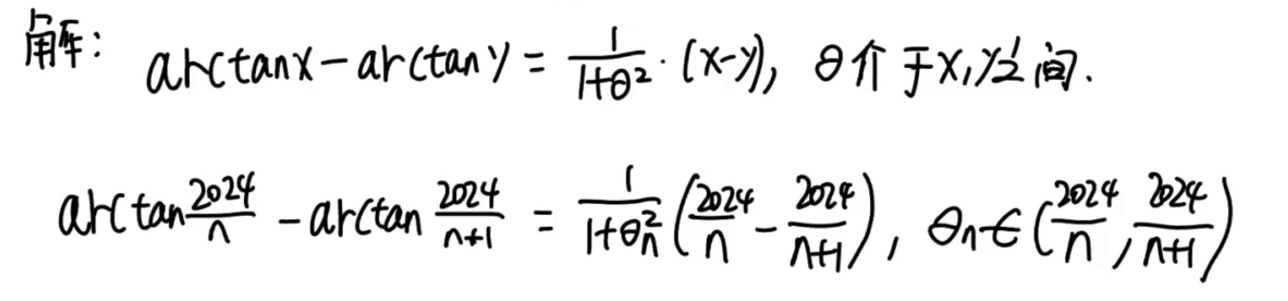 解: arctanx - arctany = 1/(1+θ²) · (x-y), θ介于x,y之间.
arctan 2024/n - arctan 2024/(n+1) = 1/(1+θₙ²) (2024/n - 2024/(n+1)), θₙ∈(2024/n, 2024/(n+1))